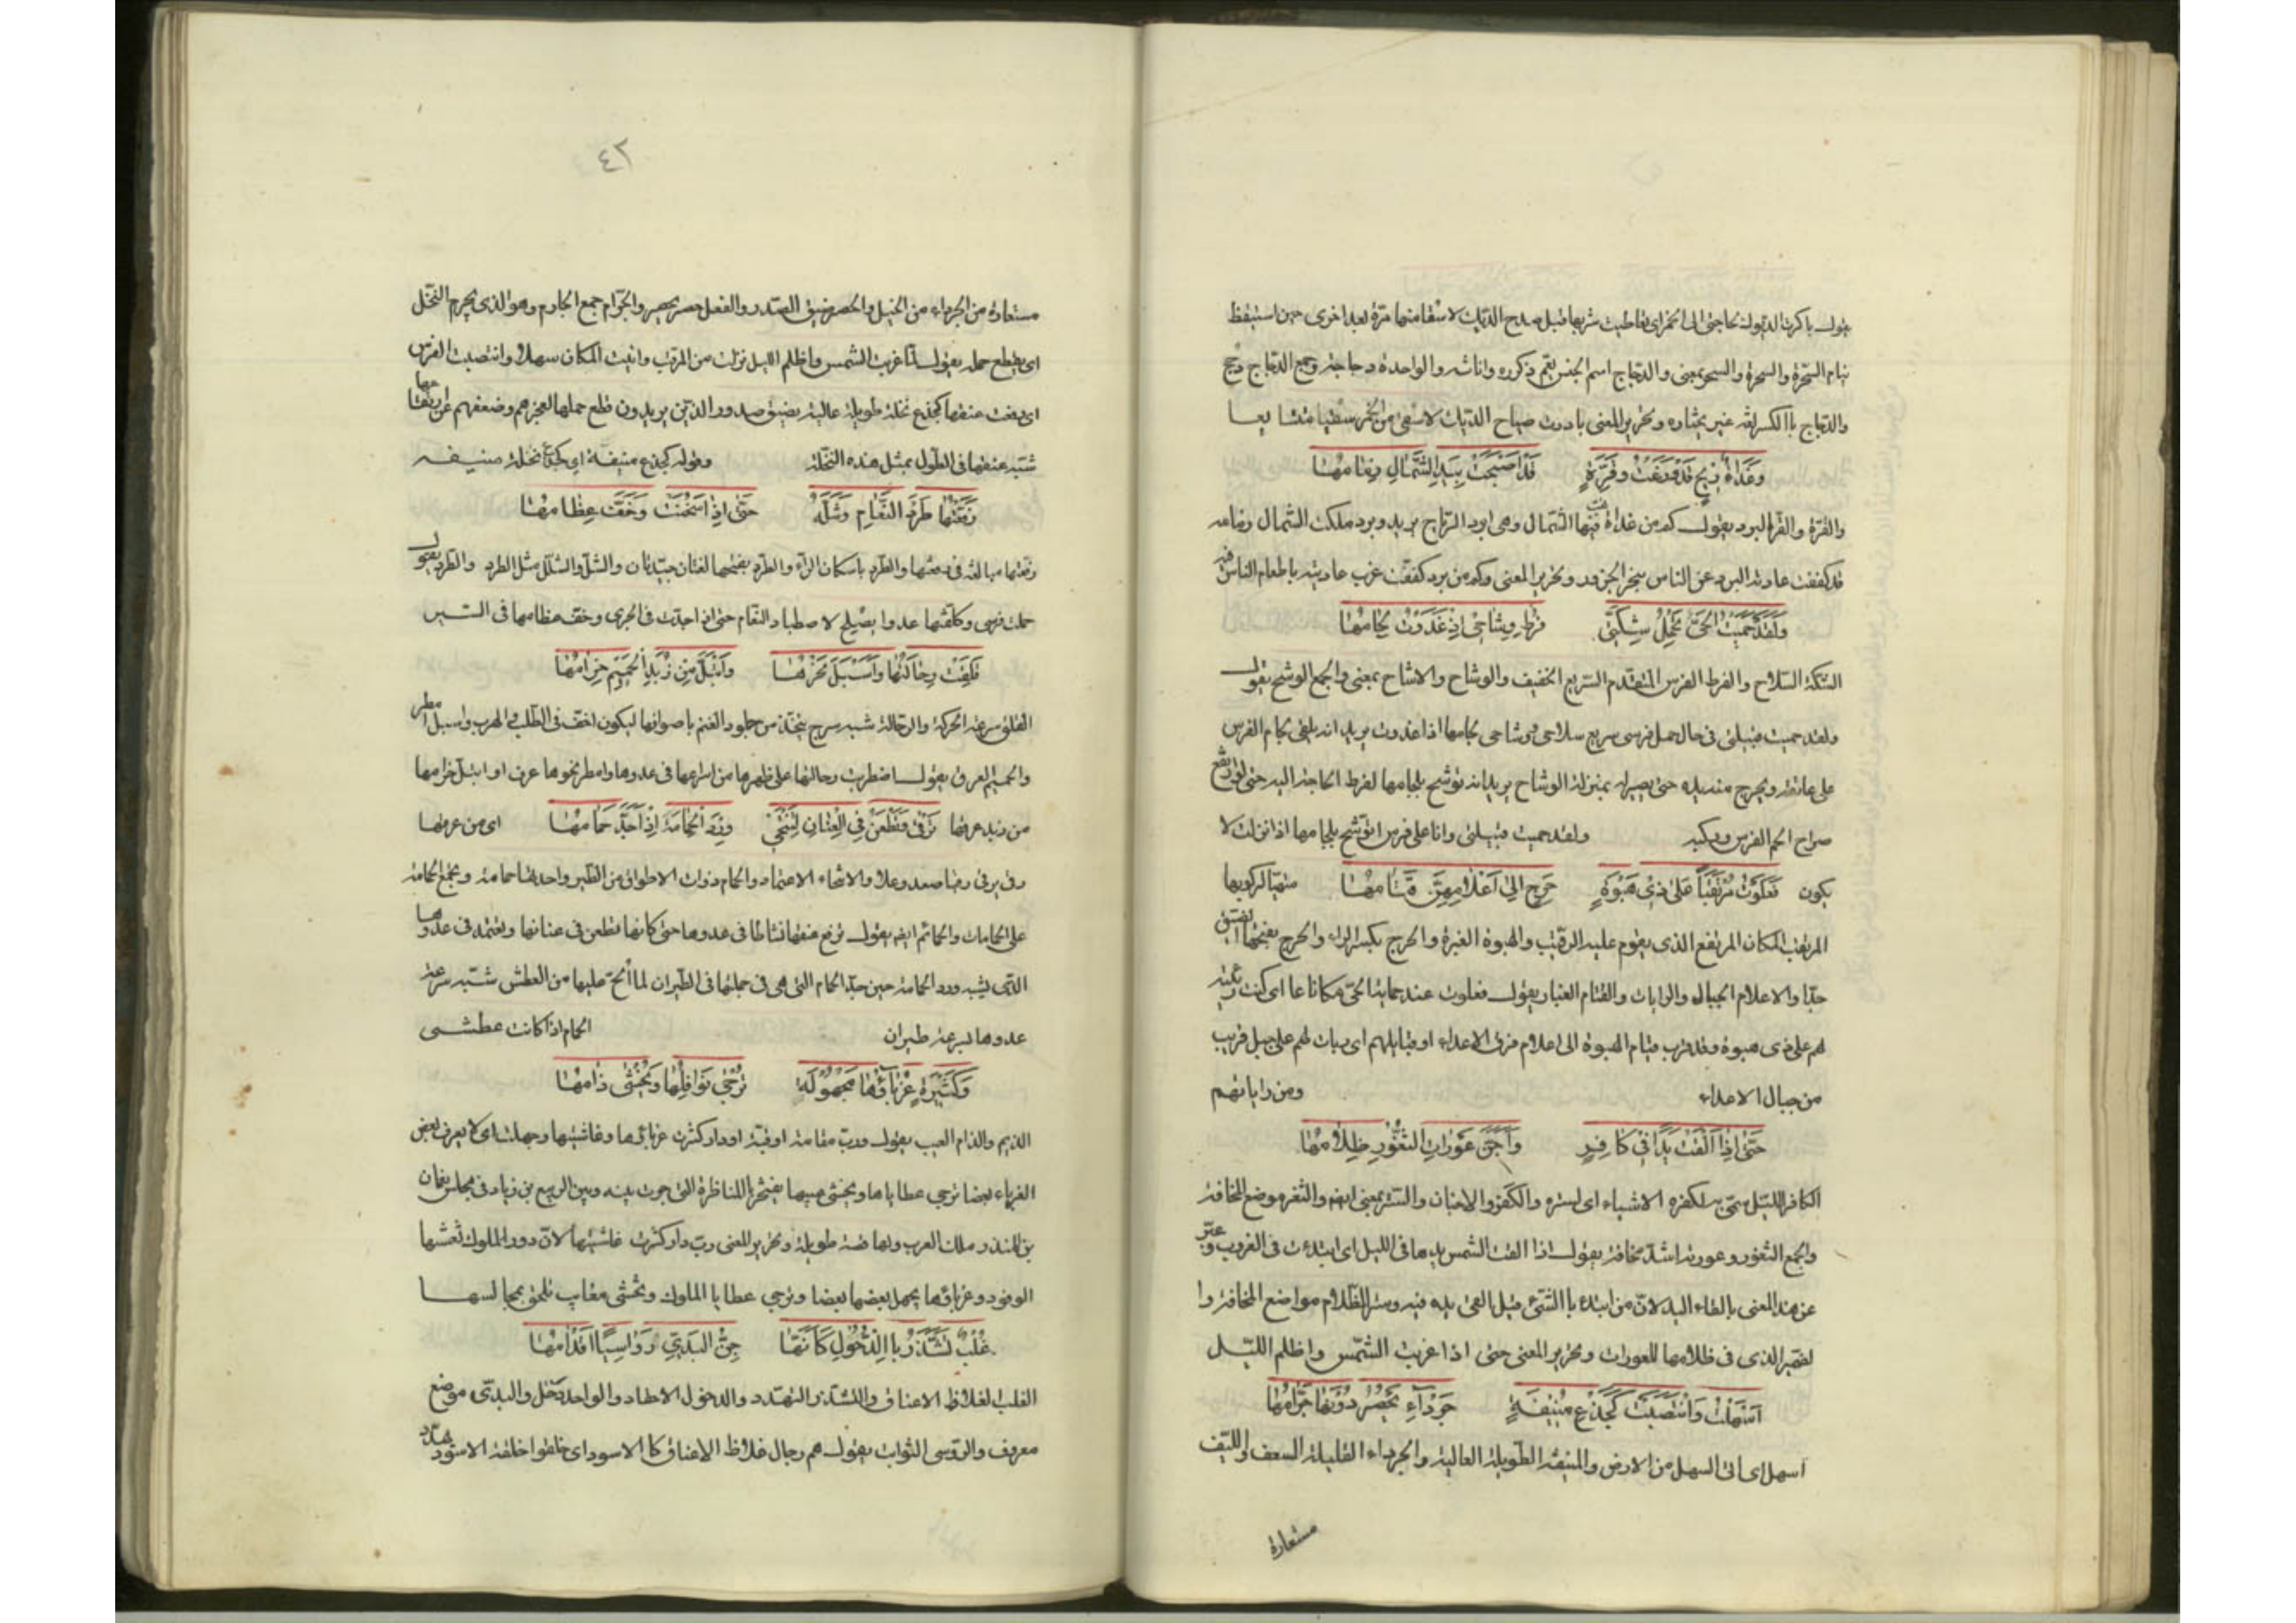 يقول باكرت الديوك لحاجتى الى الخمر اى تعاطيت شربها قبل صدح الديك لاسقا منها مرة بعد اخرى حين استيقظ
نيام السحرة والسحرة والسحر بمعنى والدجاج اسم الجنس يعم ذكوره واناثه والواحدة دجاجة وجمع الدجاج دجج
والدجاج باالكسر لغة غير مختاره وتحرير المعنى بادرت صياح الديك لاسقى من الخمر سقيا متتا بعا
وَغَدَاةَ رِيحٍ قَدْ وَزَعْتُ وَقِرَّةٍ قَدْ اَصْبَحَتْ بِيَدِ الشَّمَالِ زِمَامُهَا
والقرة والقر البرد يقول كم من غداة تهب فيها الشمال وهى ابرد الرياح بريد وبرد ملكت الشمال زمامه
قد كففت عادية البرد عن الناس بنحر الجزور وتحرير المعنى وكم من برد كففت غرب عاديته باطعام الناس فيه
وَلَقَدْ حَمَيْتُ الْحَىَّ تَحْمِلُ شِكَّتِى فُرُطٌ وِشَاحِى اِذْ غَدَوْتُ لِجَامُهَا
الشكة السلاح والفرط الفرس المتقدم السريع الخفيف والوشاح والاشاح بمعنى والجمع الوشح يقول
ولقد حميت قبيلتى فى حال حمل فرسى سريع سلاحى ووشاحى لجامها اذا غدوت يريد انه يلقى لجام الفرس
على عاتقه ويخرج منه يده حتى يصير له بمنزلة الوشاح يريد انه توشح بلجامها لفرط الحاجة اليه حتى لو ارتفع
صراخ الجم الفرس وركبه ولقد حميت قبيلتى وانا على فرس اتوشح بلجامها اذا نزلت لا
يكون فَعَلَوْتُ مُرْتَقَباً عَلَى ذِى هَبْوَةٍ حَرِجٍ اِلَى اَعْلَامِهِنَّ قَتَامُهَا متهيا لركوبها
المرتقب المكان المرتفع الذى يقوم عليه الرقيب والهبوة الغبرة والحرج بكسر الراء والحرج بفتحها الضيق
جدا والاعلام الجبال والرايات والقتام الغبار يقول فعلوت عند حماية الحى مكانا عا اى كنت ربيئة
لهم على ذى هبوة وقد قرب قتام الهبوة الى اعلام فرق الاعداء او قبايلهم اى ربات لهم على جبل قريب
من جبال الاعداء ومن راياتهم
حَتَّى اِذَا اَلْقَتْ يَدًا فِى كَافِرٍ وَاَجَنَّ عَوْرَاتِ الثُّغُورِ ظَلَامُهَا
الكافر الليل سمى به لكفره الاشياء اى لستره والكفر والاجنان والستر بمعنى ايضا والثغر موضع المخافة
والجمع الثغور وعورته اشد مخافة يقول اذا القت الشمس يدها فى الليل اى ابتدءت فى الغروب وعبر
عن هذا المعنى بالقاء اليد لان من ابتدء باالشئ قيل القى يده فيه وستر الظلام مواضع المخافة وا
لضمير الذى فى ظلامها للعورات وتحرير المعنى حتى اذا غربت الشمس واظلم الليل
اَسْهَلْتُ وَانْتَصَبَتْ كَجِذْعِ مُنِيفَةٍ جَرْدَآءِ يَحْصَرُ دُوْنَهَا جُرَّامُهَا
اسهل اى اتى السهل من الارض والمنيفة الطويلة العالية والجرداء القليلة السعف والليف
مستعارة
٤٢
مستعارة من الجرداء من الخيل والحصر ضيق الصدر والفعل حصر يحصر والجرام جمع الجارم وهو الذى يجرم النخل
اى يقطع حمله يقول لما غربت الشمس واظلم الليل نزلت من المرقب واتيت المكان سهلا وانتصبت الفرس
اى رفعت عنقها كجذع نخلة طويلة عالية يضيق صدور الذين يريدون قطع حملها لعجزهم وضعفهم عن ارتقائها
شبه عنقها فى الطول بمثل هذه النخلة وقوله كجذع منيفة اى كجذع نخلة منيفه
رَفَّعْتُهَا طَرَدَ النَّعَامِ وَشَلَّهُ حَتَّى اِذَا سَخُنَتْ وَخَفَّ عِظَامُهَا
رفعتها مبالغة فى رفعتها والطرد باسكان الراء والطرد بفتحها لغتان جيدتان والشل والشلل مثل الطرد والطرد يقول
حملت فرسى وكلفتها عدوا يصلح لاصطياد النعام حتى اذا جدت فى الجرى وخف عظامها فى السير
قَلِقَتْ رِحَالَتُهَا وَاَسْبَلَ نَحْرُهَا وَابْتَلَّ مِنْ زَبَدِ الْحَمِيْمِ حِزَامُهَا
القلق سرعة الحركة والرحالة شبه سرج يتخذ من جلود الغنم باصوافها ليكون اخف فى الطلب والهرب واسبل امطر
والحميم العرق يقول اضطربت رحالتها على ظهرها من اسراعها فى عدوها وامطر نحرها عرقا وابتل حزامها
من زبد عرقها تَرْقَى وَتَطْعَنُ فِى الْعِنَانِ وَتَنْتَحِى وِرْدَ الْحَمَامَةِ اِذْ اَجَدَّ حَمَامُهَا اى من عرقها
رقى يرقى رقيا صعد وعلا والانتحاء الاعتماد والحمام ذوات الاطواق من الطير واحدتها حمامة ويجمع الحمامة
على الحمامات والحمائم ايضا يقول ترفع عنقها نشاطا فى عدوها حتى كانها تطعن فى عنانها وتعتمد فى عدوها
الذى يشبه ورد الحمامة حين جد الحمام التى هى فى جملتها فى الطيران لما الح عليها من العطش شبه سرعة
عدوها بسرعة طيران الحمام اذا كانت عطشى
وَكَثِيْرَةٍ غُرَبَآؤُهَا مَجْهُوْلَةٍ تُرْجَى نَوَافِلُهَا وَيُخْشَى ذَامُهَا
الذيم والذام العيب يقول ورب مقامة او قبة او دار كثرت غرباؤها وغاشيتها وجهلت اى لا يعرف بعض
الغرباء بعضا ترجى عطاياها ويخشى عيبها يفتخر باالمناظرة التى جرت بينه وبين الربيع بن زياد فى مجلس نعمان
بن المنذر ملك العرب ولها قصة طويلة وتحرير المعنى رب دار كثرت غاشيتها لان دور الملوك تغشها
الوفود وغرباؤها يجهل بعضها بعضا وترجى عطايا الملوك وتخشى معايب تلحق بمجالسها
غُلْبٌ تَشَذَّرُ باالذُّحُولِ كَاَنَّهَا جِنُّ الْبَدِيِّ رَوَاسِيًا اَقْدَامُهَا
الغلب الغلاظ الاعناق والتشذر التهدد والذحول الاحقاد والواحد ذحل والبدى موضع
معروف والرواسى الثوابت يقول هم رجال غلاظ الاعناق كالاسود اى خلقوا خلقة الاسود يهدد